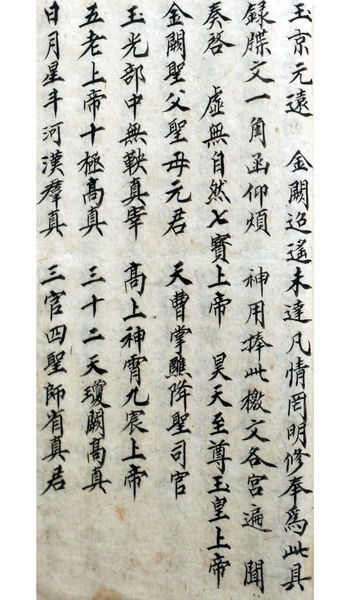 玉京元遠　金闕迢遙未達凡情罔明修奉為此具
錄牒文一角函仰煩　神用捧此檄文各宮遍　聞
奏啓　虛無自然七寳上帝　昊天至尊玉皇上帝
金闕聖父聖母元君　天曹掌醮降聖司官
玉光部中無鞅真宰　高上神霄九宸上帝
五老上帝十極高真　三十二天瓊闕高真
日月星斗河漢羣真　三官四聖師省真君